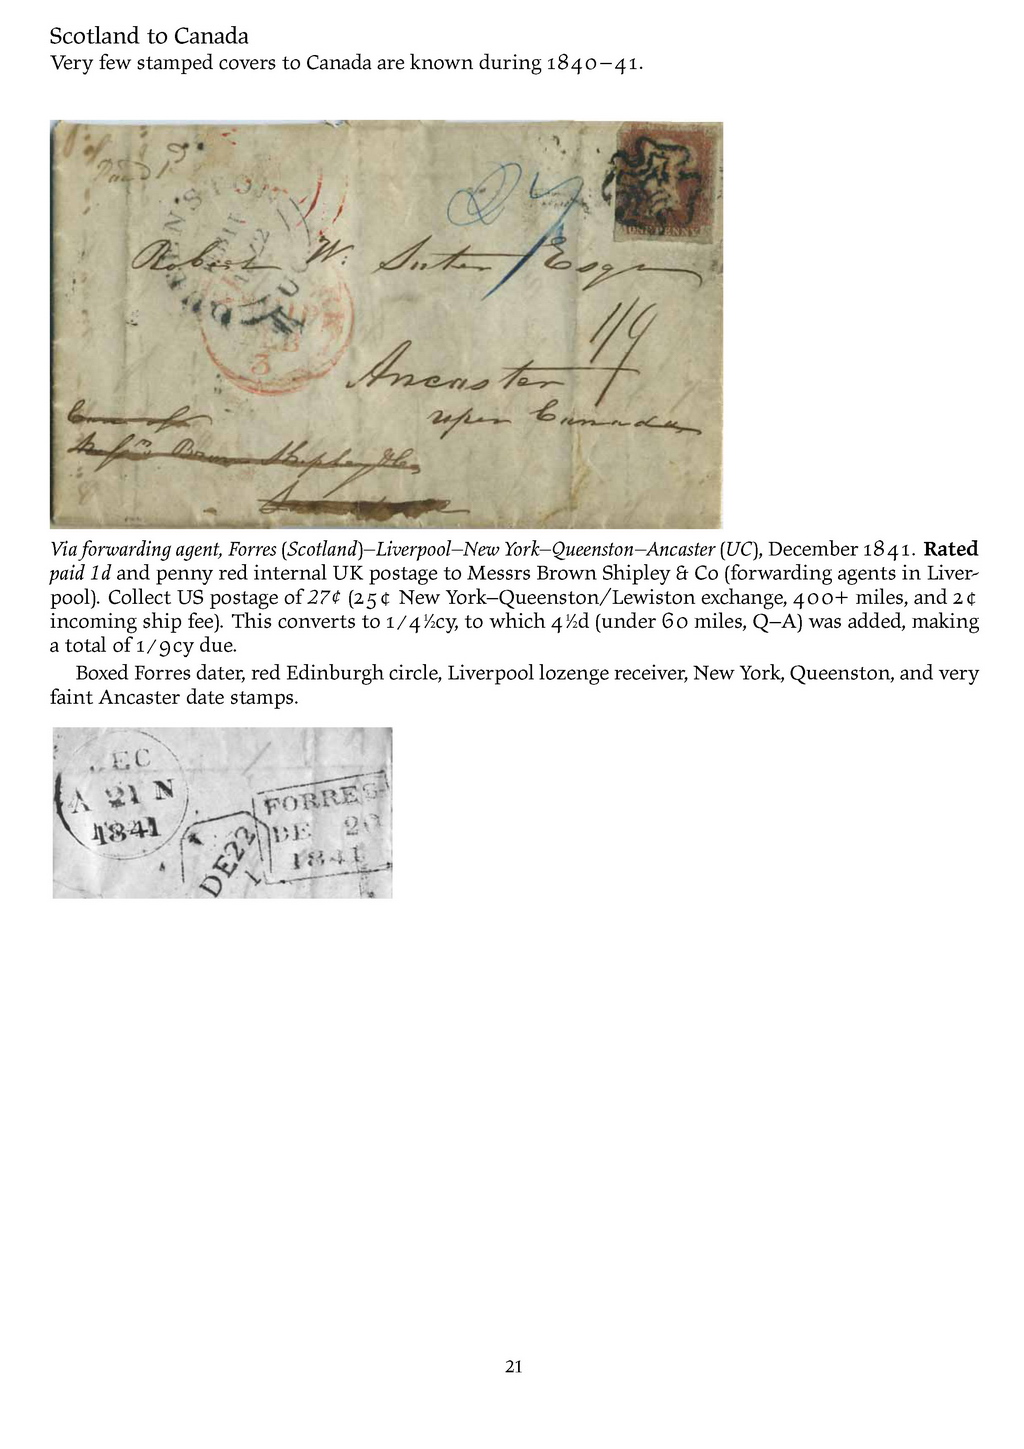 Scotland to Canada
Very few stamped covers to Canada are known during 1840–41.
Paid 1d
27
ONE PENNY
Robert W. Suter Esqr
1/9
Ancaster
uper Canada
Care of
Messrs Brown Shipley & Co
3
Via forwarding agent, Forres (Scotland)–Liverpool–New York–Queenston–Ancaster (UC), December 1841. Rated
paid 1d and penny red internal UK postage to Messrs Brown Shipley & Co (forwarding agents in Liver-
pool). Collect US postage of 27¢ (25¢ New York–Queenston/Lewiston exchange, 400+ miles, and 2¢
incoming ship fee). This converts to 1/4½cy, to which 4½d (under 60 miles, Q–A) was added, making
a total of 1/9cy due.
Boxed Forres dater, red Edinburgh circle, Liverpool lozenge receiver, New York, Queenston, and very
faint Ancaster date stamps.
DEC
A 21 N
1841
DE 22
1
FORRES
DE 20
1841
21